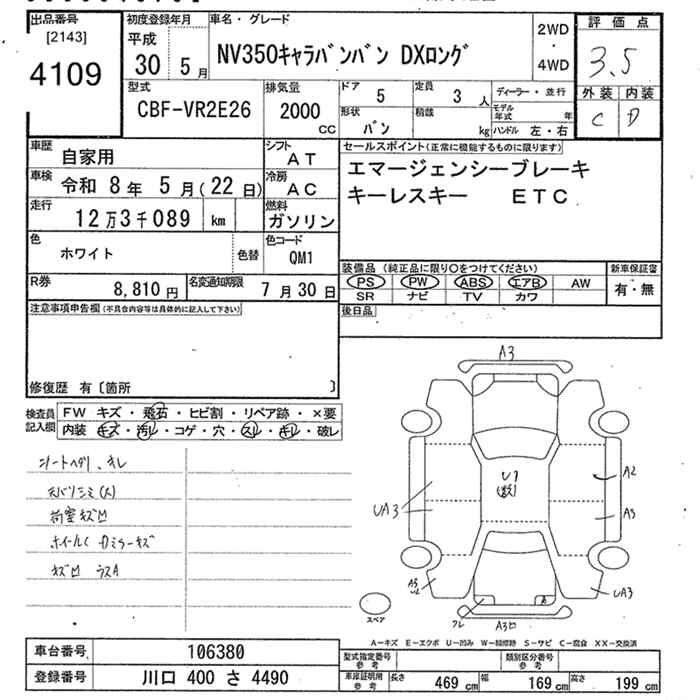 出品番号
[2143]
4109
初度登録年月
平成
30 5月
車名・グレード
NV350キャラバンバン DXロング
2WD
・
4WD
評価点
3.5
外装 内装
C D
型式
CBF-VR2E26
排気量
2000
cc
ドア 5
定員 3人
ディーラー・並行
形状
バン
積載
kg
モデル年式 年
ハンドル 左・右
車歴
自家用
シフト
AT
車検
令和 8年 5月(22日)
冷房
AC
走行
12万3千089 km
燃料
ガソリン
色
ホワイト
色替
色コード
QM1
R券
8,810円
名変通知期限
7月30日
セールスポイント(正常に機能するものに限ります)
エマージェンシーブレーキ
キーレスキー ETC
装備品(純正品に限り○をつけてください)
PS PW ABS エアB AW
SR ナビ TV カワ
新車保証書
有・無
後日品
注意事項申告欄(不具合内容等は具体的に記入して下さい)
修復歴 有〔箇所 〕
検査員記入欄
FW キズ・飛石・ヒビ割・リペア跡・×要
内装 キズ・汚レ・コゲ・穴・スレ・キレ・破レ
シートヘタリ、キレ
天バリシミ(大)
荷室キズ凹
A3
U1
A2
UA3
A3
A3
UA3
フレ
A
A3凹
スペア
A−キズ E−エクボ U−凹み W−補修跡 S−サビ C−腐食 XX−交換済
車台番号 106380
登録番号 川口 400 さ 4490
型式指定番号
参考
類別区分番号
参考
車庫証明用
参考
長さ 469cm
幅 169cm
高さ 199cm